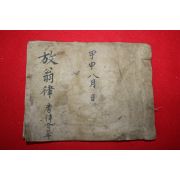 甲申八月 日
放翁律